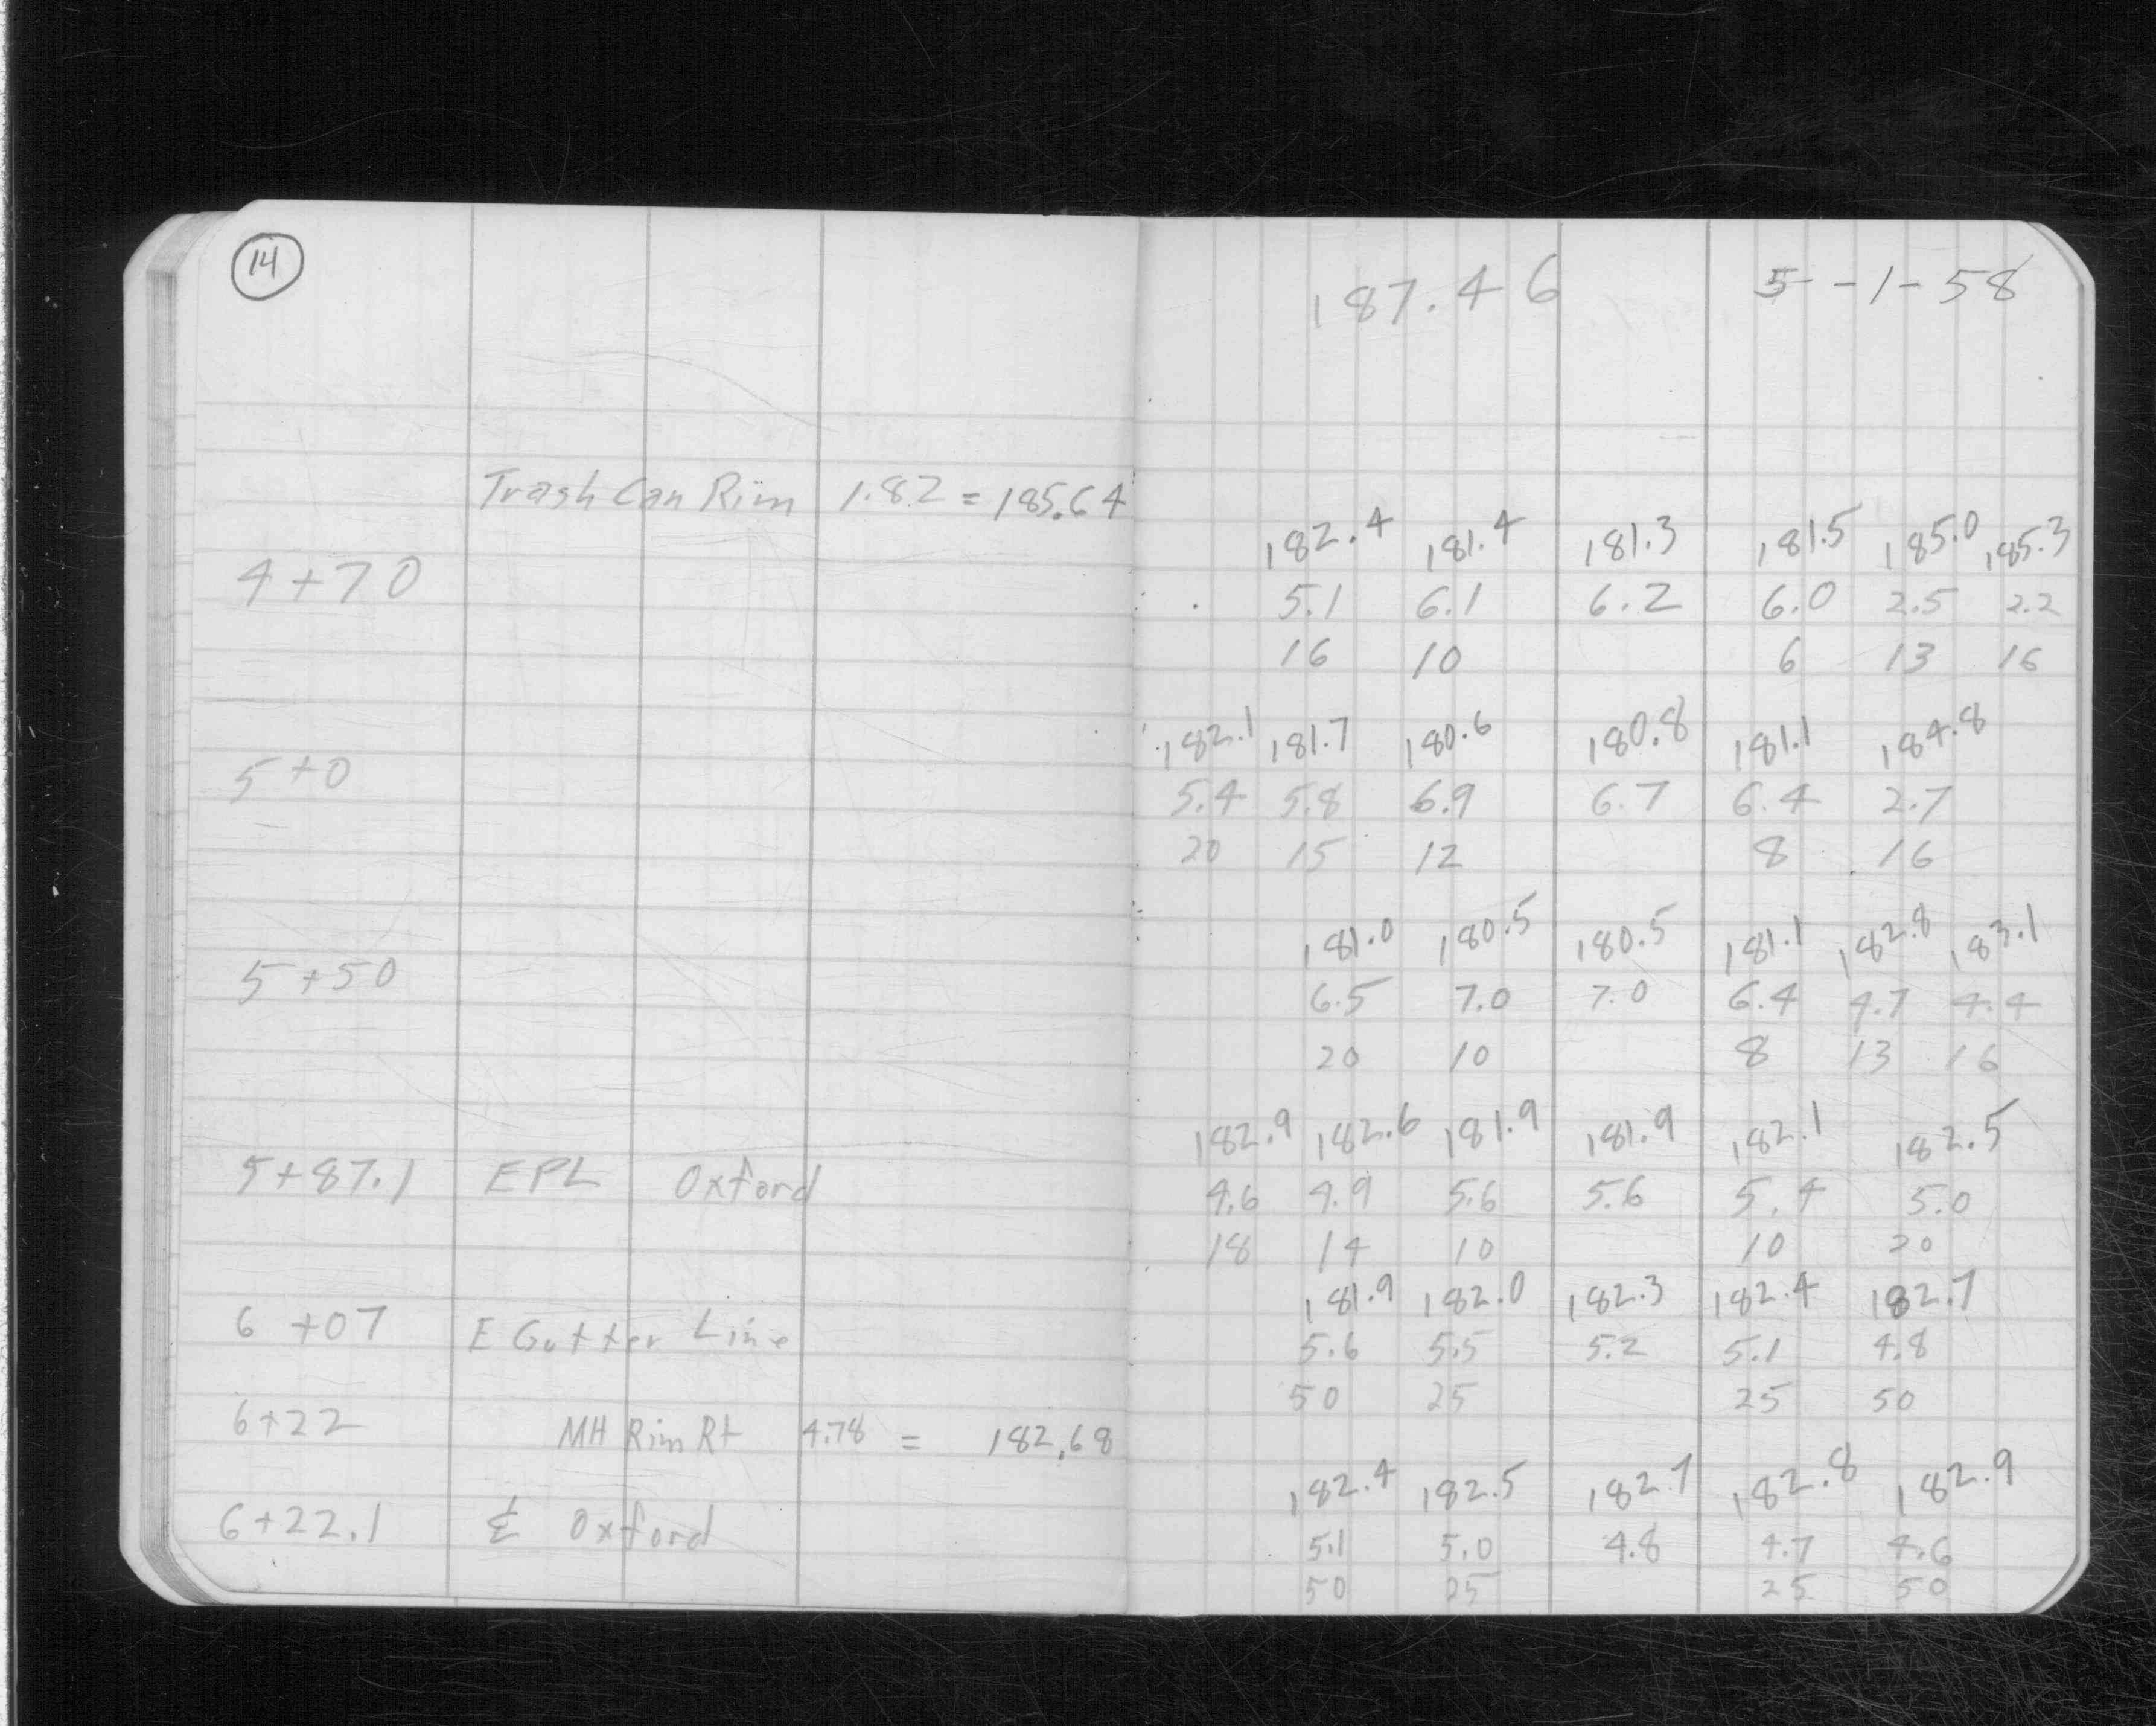 14
187.46 5-1-58
Trash Can Rim 1.82 = 185.64
182.4 181.4 181.3 181.5 185.0 185.3
4+70 5.1 6.1 6.2 6.0 2.5 2.2
16 10 6 13 16
182.1 181.7 180.6 180.8 181.1 184.8
5+0 5.4 5.8 6.9 6.7 6.4 2.7
20 15 12 8 16
181.0 180.5 180.5 181.1 182.8 183.1
5+50 6.5 7.0 7.0 6.4 4.7 4.4
20 10 8 13 16
182.9 182.6 181.9 181.9 182.1 182.5
5+87.1 EPL Oxford 4.6 4.9 5.6 5.6 5.4 5.0
18 14 10 10 20
181.9 182.0 182.3 182.4 182.7
6+07 E Gutter Line 5.6 5.5 5.2 5.1 4.8
50 25 25 50
6+22 MH Rim Rt 4.78 = 182.68
182.4 182.5 182.7 182.8 182.9
6+22.1 ℄ Oxford 5.1 5.0 4.8 4.7 4.6
50 25 25 50